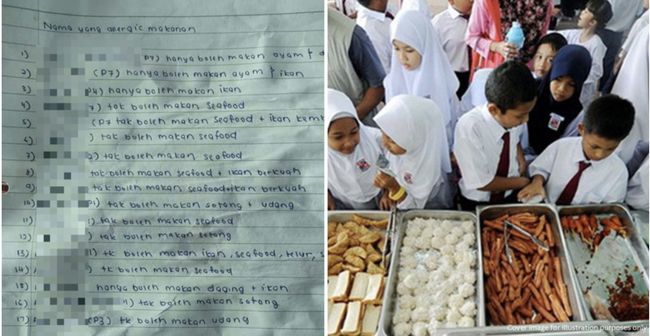 Nama yang alergic makanan
1) P7) hanya boleh makan ayam &
2) (P7) hanya boleh makan ayam & ikan
3) P4) hanya boleh makan ikan
4) 7) tak boleh makan seafood
5) (P7 tak boleh makan seafood + ikan kemb
6) ) tak boleh makan seafood
7) 2) tak boleh makan seafood
8) tak boleh makan seafood + ikan berkuah
9) tak boleh makan seafood+ikan berkuah
10) P1) tak boleh makan sotong + udang
11) 1) tak boleh makan seafood
12) ) tak boleh makan sotong
13) 11) tk boleh makan ikan, seafood, telur, s
14) ) tk boleh makan seafood
15) hanya boleh makan daging + ikan
16) 1) tak boleh makan sotong
17) (P3) tk boleh makan udang
Cover image for illustration purposes only